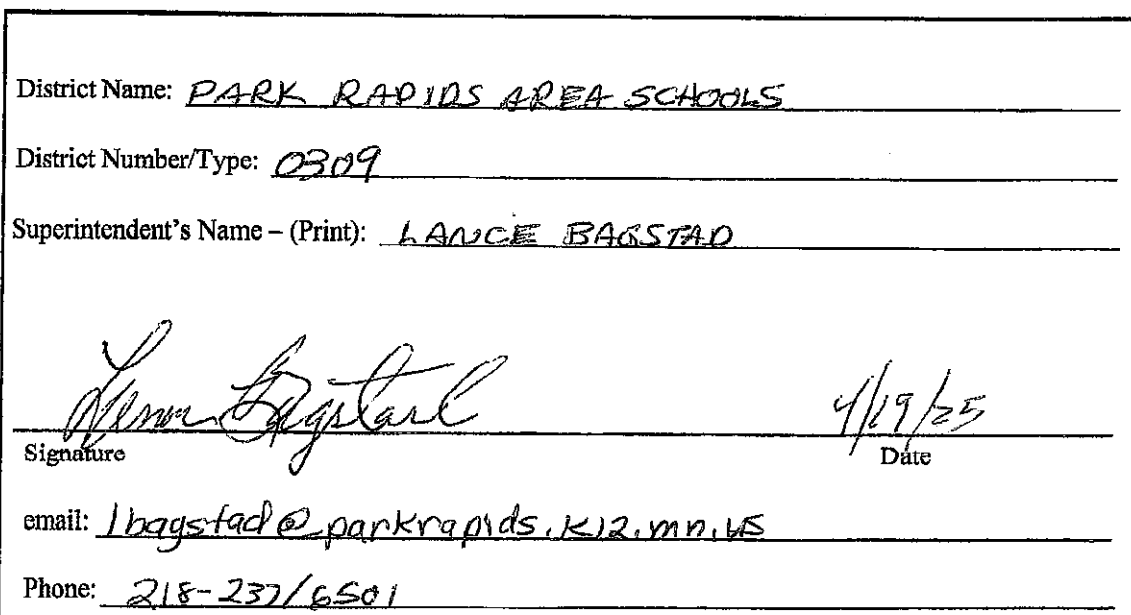 District Name: PARK RAPIDS AREA SCHOOLS
District Number/Type: 0309
Superintendent's Name – (Print): LANCE BAGSTAD
Bagstad 4/19/25
Signature Date
email: lbagstad@parkrapids.k12.mn.us
Phone: 218-237/6501